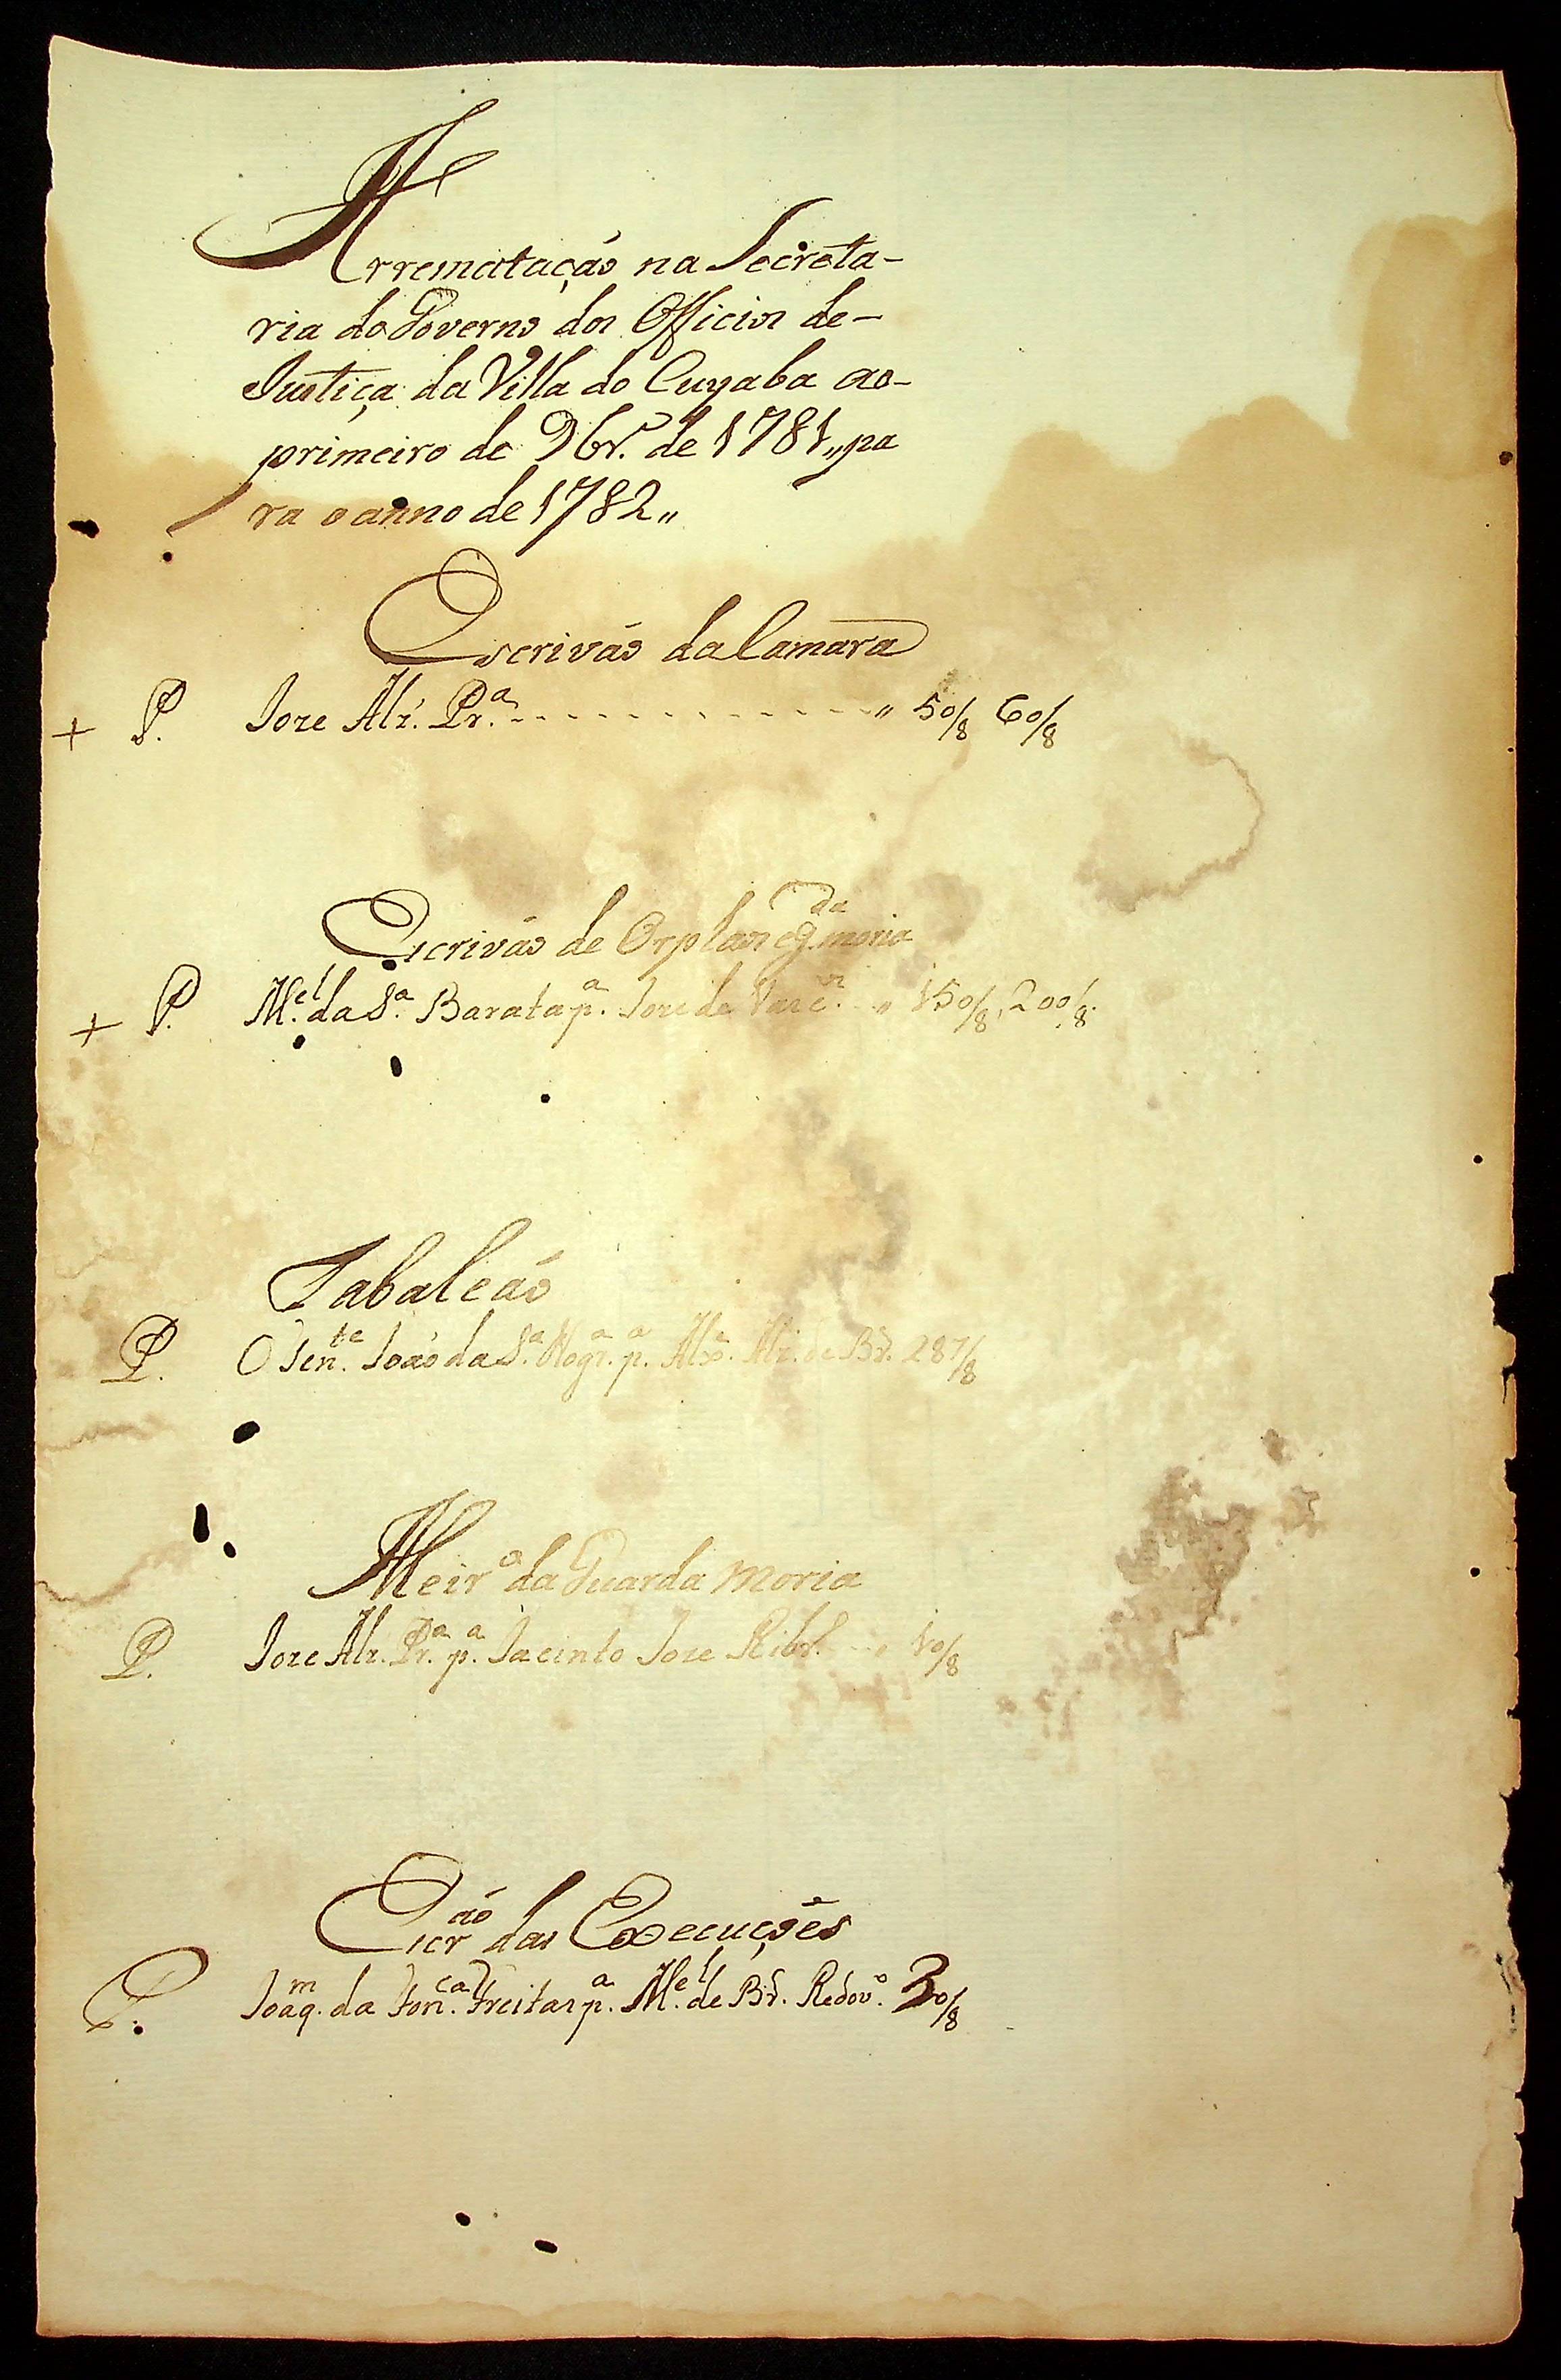 Arrematação na Secreta-
ria do Governo dos Officios de-
Justiça da Villa do Cuyaba ao-
primeiro de 9br.º de 1781,, pa
ra o anno de 1782,,
Escrivão da Camara
+ P. Joze Alz'. Pr.ª - - - - - - - - - - - - - " 50/8 60/8
Escrivão de Orplãos e G.da moria
+ P. M.el da S.ª Barata p.ª Joze de Vasc.os " 150/8, 200/8.
Tabaleão
P. O Ten.te João da S.ª Nogr.ª p.ª Alx.e Alz. de Br.º 287/8
Meir.º da Guarda Moria
P. Joze Alz. Pr.ª p.ª Jacinto Joze Ribr.º 10/8
Escr.ão das Execuções
P. Joaq.m da Fon.ca Freitas p.ª M.el de Br.º Redov.º 30/8